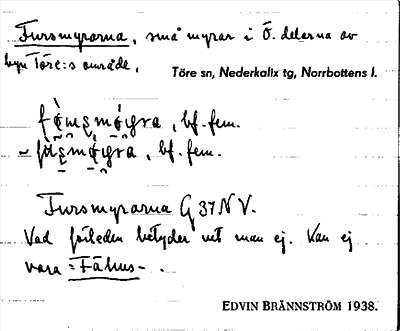 Fursmyrorna, små myrar i Ö. delarna av
byn Töre:s område,
Töre sn, Nederkalix tg, Norrbottens l.
bf. fem.
bf. fem.
Fursmyrarna G 37 N V.
Vad förleden betyder vet man ej. Kan ej
vara =Fähus-.
EDVIN BRÄNNSTRÖM 1938.